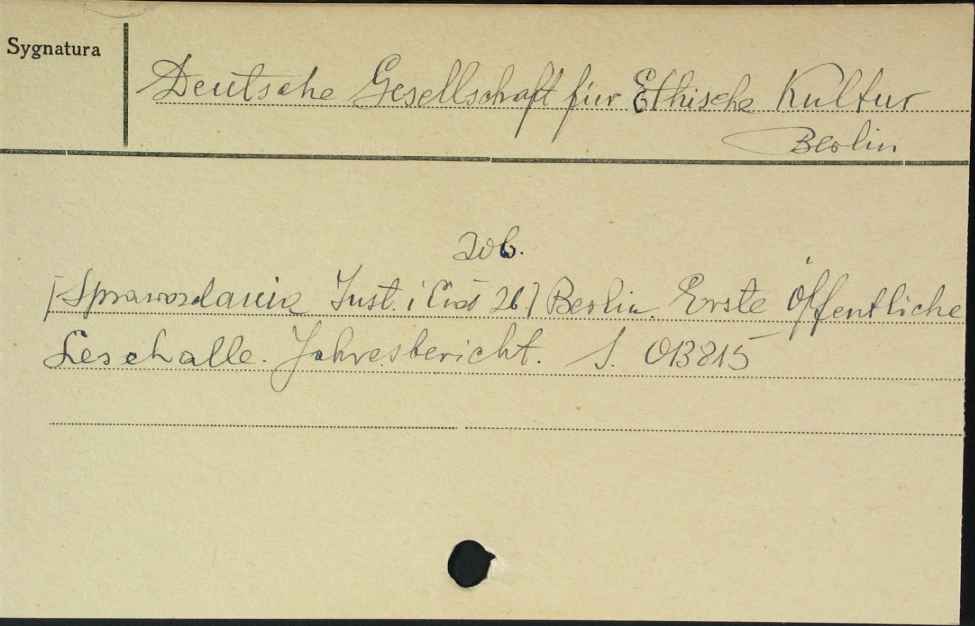 Sygnatura
Deutsche Gesellschaft für Ethische Kultur
Berlin
zob.
[Sprawozdania Inst. i 26] Berlin. Erste Öffentliche
Lesehalle. Jahresbericht. S. 013815